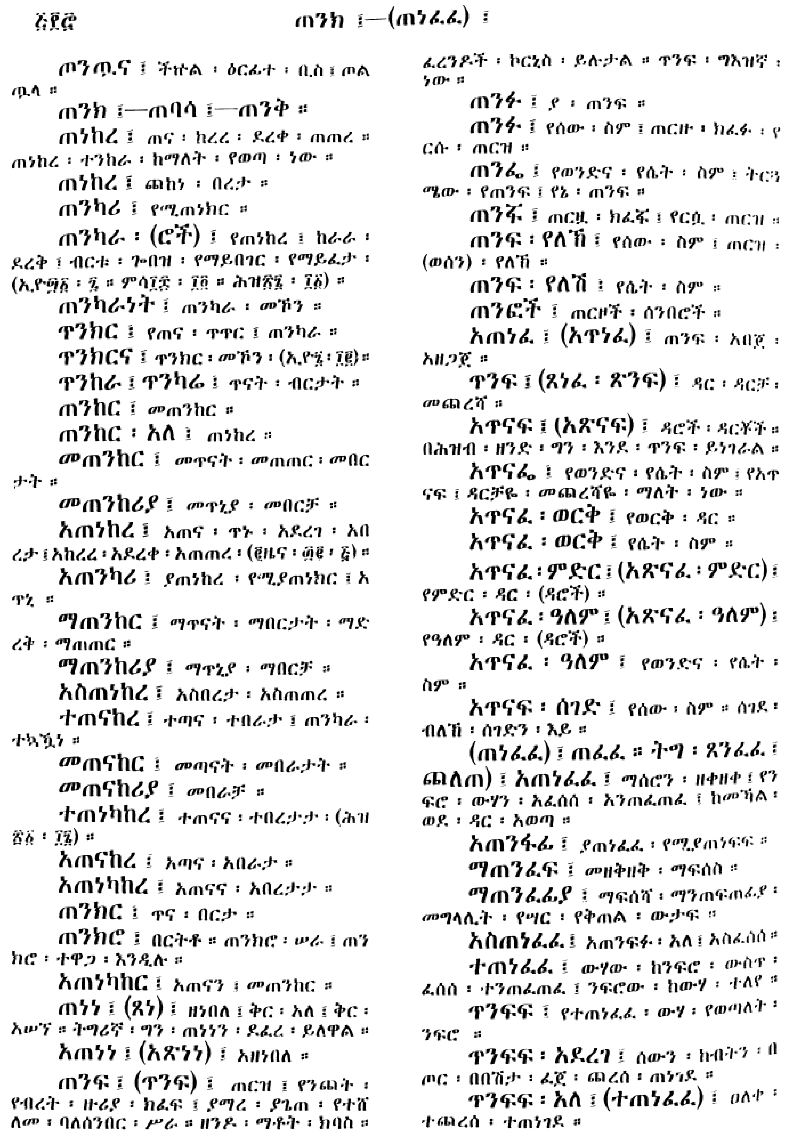 ፭፻፸ ጠንክ ፤—(ጠነፈፈ) ፤
ጦንጧና ፤ ችኵል ፡ ዕርፊተ ፡ ቢስ ፤ ጦል
ጧላ ።
ጠንክ ፤—ጠባሳ ፤—ጠንቅ ።
ጠነከረ ፤ ጠና ፡ ከረረ ፡ ደረቀ ፡ ጠጠረ ።
ጠነከረ ፡ ተንከራ ፡ ከማለት ፡ የወጣ ፡ ነው ።
ጠነከረ ፤ ጨከነ ፡ በረታ ።
ጠንካሪ ፤ የሚጠነክር ።
ጠንካራ ፡ (ሮች) ፤ የጠነከረ ፤ ከራራ ፡
ደረቅ ፤ ብርቱ ፡ ጐበዝ ፡ የማይበገር ፡ የማይፈታ ፡
ጠንካራነት ፤ ጠንካራ ፡ መኾን ።
ጥንክር ፤ የጠና ፡ ጥጥር ፤ ጠንካራ ።
ጥንክርና ፤ ጥንክር ፡ መኾን ፡
ጥንከራ ፤ ጥንካሬ ፤ ጥናት ፡ ብርታት ።
ጠንከር ፤ መጠንከር ።
ጠንከር ፡ አለ ፤ ጠነከረ ።
መጠንከር ፤ መጥናት ፡ መጠጠር ፡ መበር
ታት ።
መጠንከሪያ ፤ መጥኒያ ፡ መበርቻ ።
አጠነከረ ፤ አጠና ፡ ጥኑ ፡ አደረገ ፡ አበ
ረታ ፤ አከረረ ፡ አደረቀ ፡ አጠጠረ ፡
አጠንካሪ ፤ ያጠነከረ ፡ የሚያጠነክር ፤ አ
ጥኒ ።
ማጠንከር ፤ ማጥናት ፡ ማበርታት ፡ ማድ
ረቅ ፡ ማጠጠር ።
ማጠንከሪያ ፤ ማጥኒያ ፡ ማበርቻ ።
አስጠነከረ ፤ አስበረታ ፡ አስጠጠረ ።
ተጠናከረ ፤ ተጣና ፡ ተበራታ ፤ ጠንካራ ፡
ተኳዃነ ።
መጠናከር ፤ መጣናት ፡ መበራታት ።
መጠናከሪያ ፤ መበራቻ ።
ተጠነካከረ ፤ ተጠናና ፡ ተበረታታ ፡ (ሕዝ
አጠናከረ ፤ አጣና ፡ አበራታ ።
አጠነካከረ ፤ አጠናና ፡ አበረታታ ።
ጠንክር ፤ ጥና ፡ በርታ ።
ጠንክሮ ፤ በርትቶ ። ጠንክሮ ፡ ሠራ ፤ ጠን
ክሮ ፡ ተዋጋ ፡ እንዲሉ ።
አጠነካከር ፤ አጠናን ፤ መጠንከር ።
ጠነነ ፤ (ጸነ) ፤ ዘነበለ ፤ ቅር ፡ አለ ፤ ቅር ፡
አሠኘ ። ትግሪኛ ፡ ግን ፡ ጠነነን ፡ ደፈረ ፡ ይለዋል ።
አጠነነ ፤ (አጽነነ) ፤ አዘነበለ ።
ጠንፍ ፤ (ጥንፍ) ፤ ጠርዝ ፤ የንጨት ፡
የብረት ፡ ዙሪያ ፡ ክፈፍ ፤ ያማረ ፡ ያጌጠ ፡ የተሸ
ለመ ፡ ባለሰንበር ፡ ሥራ ። ዘንዶ ፡ ማቶት ፡ ክባስ ።
ፈረንዶች ፡ ኮርኒስ ፡ ይሉታል ። ጥንፍ ፡ ግእዝኛ ፡
ነው ።
ጠንፉ ፤ ያ ፡ ጠንፍ ።
ጠንፉ ፤ የሰው ፡ ስም ፤ ጠርዙ ፡ ክፈፉ ፡ የ
ርሱ ፡ ጠርዝ ።
ጠንፌ ፤ የወንድና ፡ የሴት ፡ ስም ፤ ትርጓ
ሜው ፡ የጠንፍ ፤ የኔ ፡ ጠንፍ ።
ጠንፏ ፤ ጠርዟ ፡ ክፈፏ ፤ የርሷ ፡ ጠርዝ ።
ጠንፍ ፡ የለኽ ፤ የሰው ፡ ስም ፤ ጠርዝ ፡
(ወሰን) ፡ የለኽ ።
ጠንፍ ፡ የለሽ ፤ የሴት ፡ ስም ።
ጠንፎች ፤ ጠርዞች ፡ ሰንበሮች ።
አጠነፈ ፤ (አጥነፈ) ፤ ጠንፍ ፡ አበጀ ፡
አዘጋጀ ።
ጥንፍ ፤ (ጸነፈ ፡ ጽንፍ) ፤ ዳር ፡ ዳርቻ ፡
መጨረሻ ።
አጥናፍ ፤ (አጽናፍ) ፤ ዳሮች ፡ ዳርቾች ።
በሕዝብ ፡ ዘንድ ፡ ግን ፡ እንደ ፡ ጥንፍ ፡ ይነገራል ።
አጥናፌ ፤ የወንድና ፡ የሴት ፡ ስም ፤ የአጥ
ናፍ ፤ ዳርቻዬ ፡ መጨረሻዬ ፡ ማለት ፡ ነው ።
አጥናፈ ፡ ወርቅ ፤ የወርቅ ፡ ዳር ።
አጥናፈ ፡ ወርቅ ፤ የሴት ፡ ስም ።
አጥናፈ ፡ ምድር ፤ (አጽናፈ ፡ ምድር) ፤
የምድር ፡ ዳር ፡ (ዳሮች) ።
አጥናፈ ፡ ዓለም ፤ (አጽናፈ ፡ ዓለም) ፤
የዓለም ፡ ዳር ፡ (ዳሮች) ።
አጥናፈ ፡ ዓለም ፤ የወንድና ፡ የሴት ፡
ስም ።
አጥናፍ ፡ ሰገድ ፤ የሰው ፡ ስም ። ሰገደ ፡
ብለኽ ፡ ሰገድን ፡ እይ ።
(ጠነፈፈ) ፤ ጠፈፈ ። ትግ ፡ ጸንፈፈ ፤
ጨለጠ) ፤ አጠነፈፈ ፤ ማሰሮን ፡ ዘቀዘቀ ፤ የን
ፍሮ ፡ ውሃን ፡ አፈሰሰ ፡ አንጠፈጠፈ ፤ ከመኻል ፡
ወደ ፡ ዳር ፡ አወጣ ።
አጠንፋፊ ፤ ያጠነፈፈ ፡ የሚያጠነፍፍ ።
ማጠንፈፍ ፤ መዘቅዘቅ ፡ ማፍሰስ ።
ማጠንፈፊያ ፤ ማፍሰሻ ፡ ማንጠፍጠፊያ ፡
መግላሊት ፡ የሣር ፡ የቅጠል ፡ ውታፍ ።
አስጠነፈፈ ፤ አጠንፍፉ ፡ አለ ፤ አስፈሰሰ ።
ተጠነፈፈ ፤ ውሃው ፡ ከንፍሮ ፡ ውስጥ ፡
ፈሰሰ ፡ ተንጠፈጠፈ ፤ ንፍሮው ፡ ከውሃ ፡ ተለየ ።
ጥንፍፍ ፤ የተጠነፈፈ ፡ ውሃ ፡ የወጣለት ፡
ንፍሮ ።
ጥንፍፍ ፡ አደረገ ፤ ሰውን ፡ ከብትን ፡ በ
ጦር ፡ በበሽታ ፡ ፈጀ ፡ ጨረሰ ፡ ጠነገደ ።
ጥንፍፍ ፡ አለ ፤ (ተጠነፈፈ) ፤ ዐለቀ ፡
ተጨረሰ ፡ ተጠነገደ ።